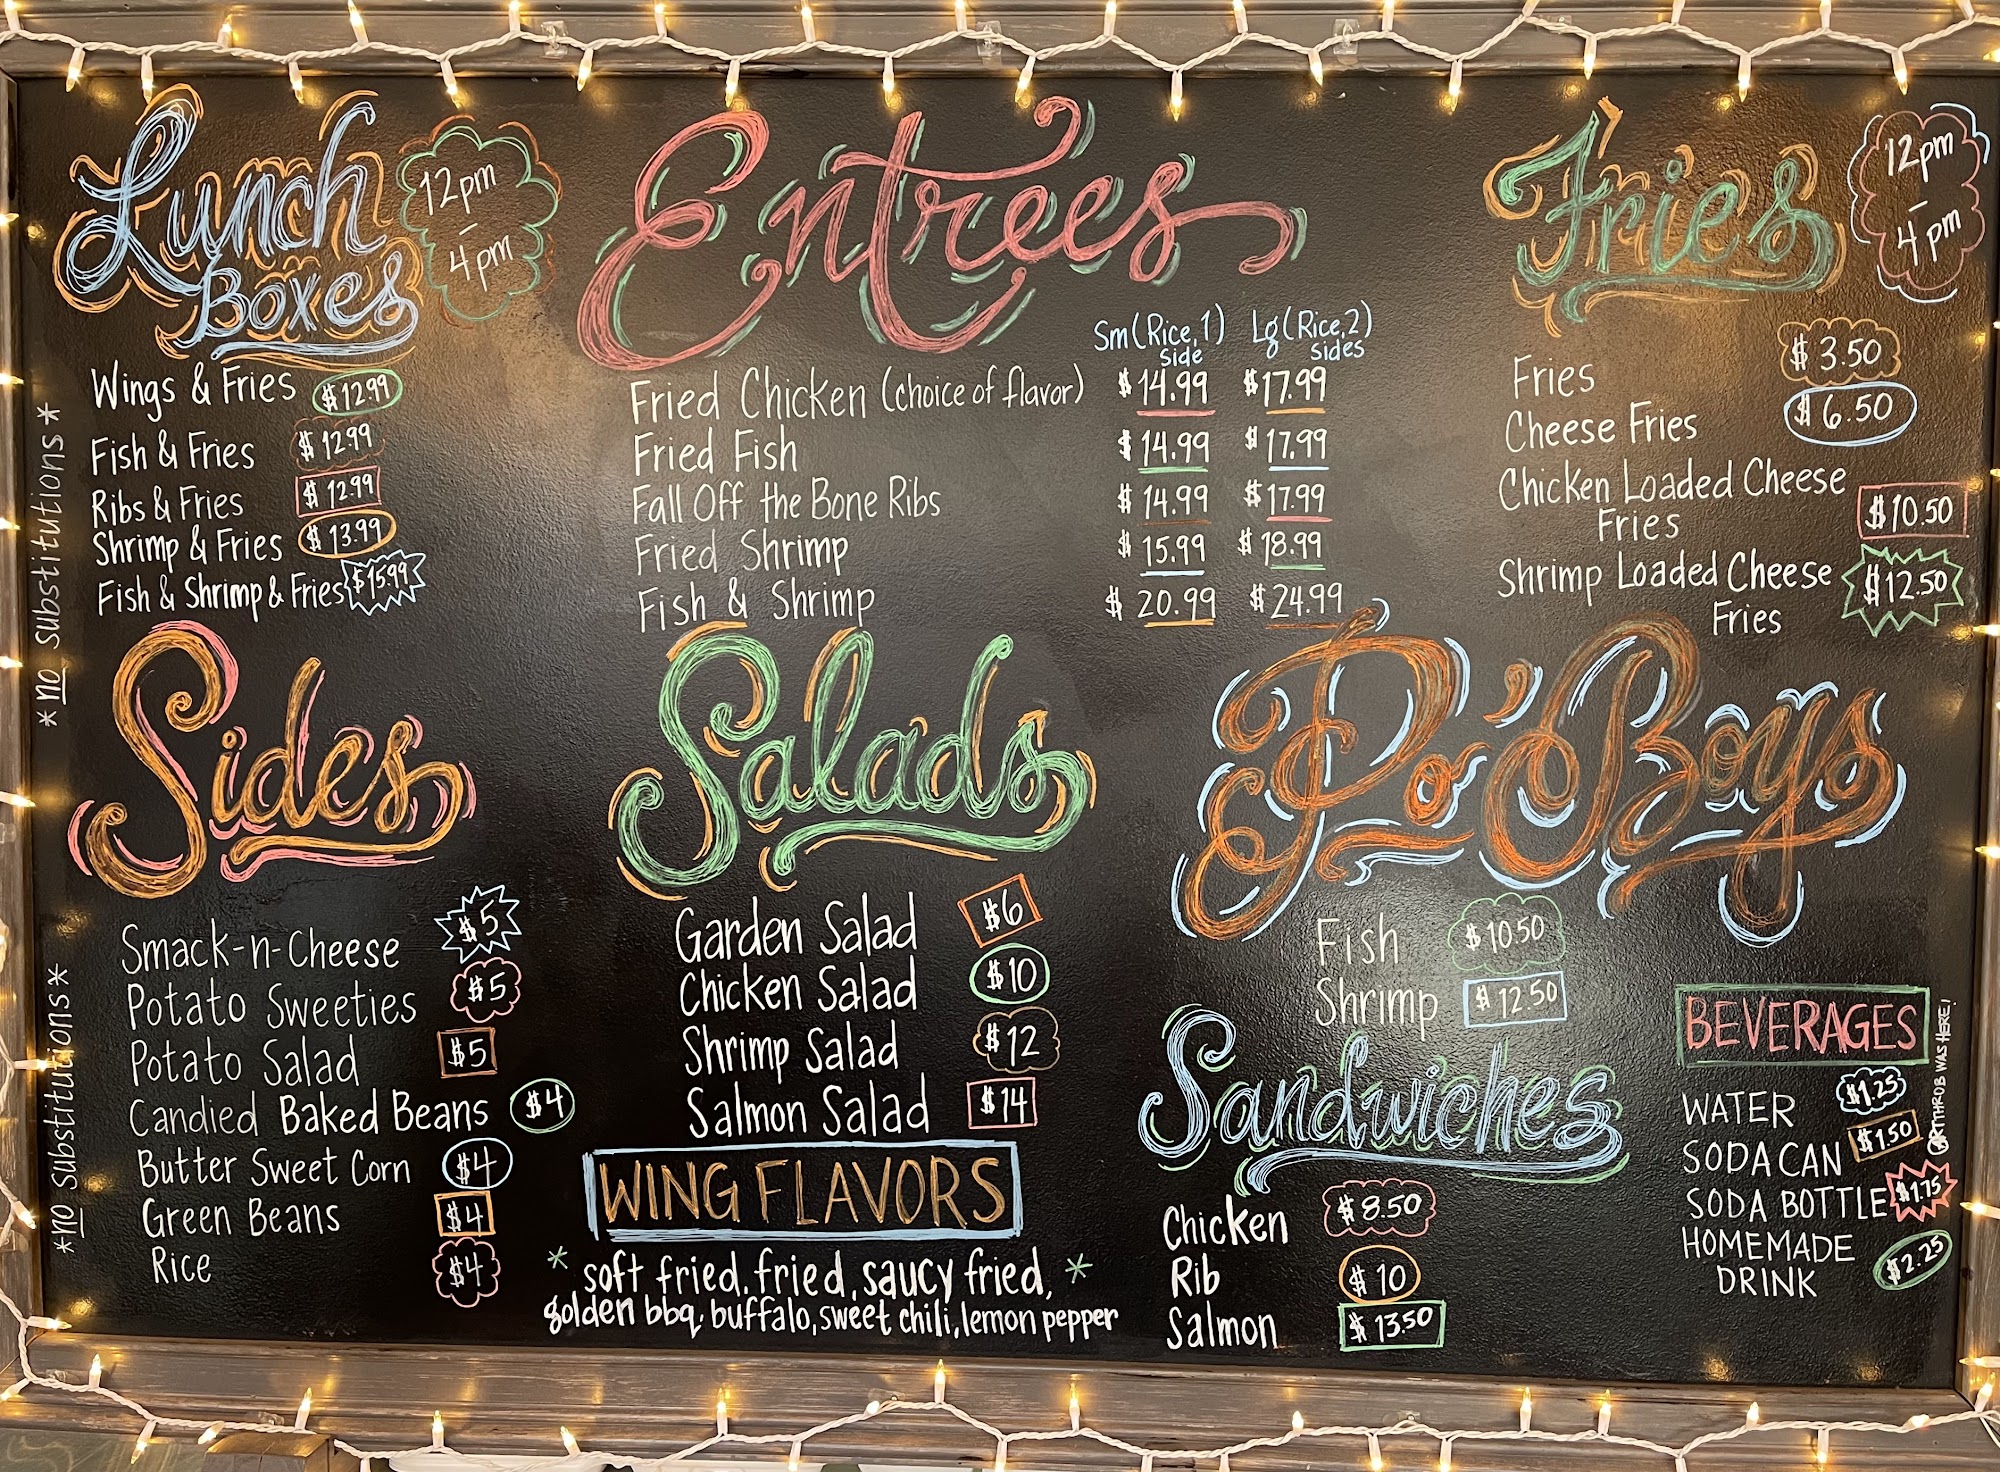 Lunch
Boxes
12pm
-
4pm
Wings & Fries $12.99
Fish & Fries $12.99
Ribs & Fries $12.99
Shrimp & Fries $13.99
Fish & Shrimp & Fries $15.99
*no substitutions*
Entrees
Sm (Rice, 1) Lg (Rice, 2)
side sides
Fried Chicken (choice of flavor) $14.99 $17.99
Fried Fish $14.99 $17.99
Fall Off the Bone Ribs $14.99 $17.99
Fried Shrimp $15.99 $18.99
Fish & Shrimp $20.99 $24.99
Fries
12pm
-
4pm
Fries $3.50
Cheese Fries $6.50
Chicken Loaded Cheese
Fries $10.50
Shrimp Loaded Cheese
Fries $12.50
Sides
Smack-n-Cheese $5
Potato Sweeties $5
Potato Salad $5
Candied Baked Beans $4
Butter Sweet Corn $4
Green Beans $4
Rice $4
*no substitutions*
Salads
Garden Salad $6
Chicken Salad $10
Shrimp Salad $12
Salmon Salad $14
WING FLAVORS
* soft fried, fried, saucy fried, *
golden bbq, buffalo, sweet chili, lemon pepper
Po'Boys
Fish $10.50
Shrimp $12.50
Sandwiches
Chicken $8.50
Rib $10
Salmon $13.50
BEVERAGES
WATER $1.25
SODA CAN $1.50
SODA BOTTLE $1.75
HOMEMADE
DRINK $2.25
WAS HERE!